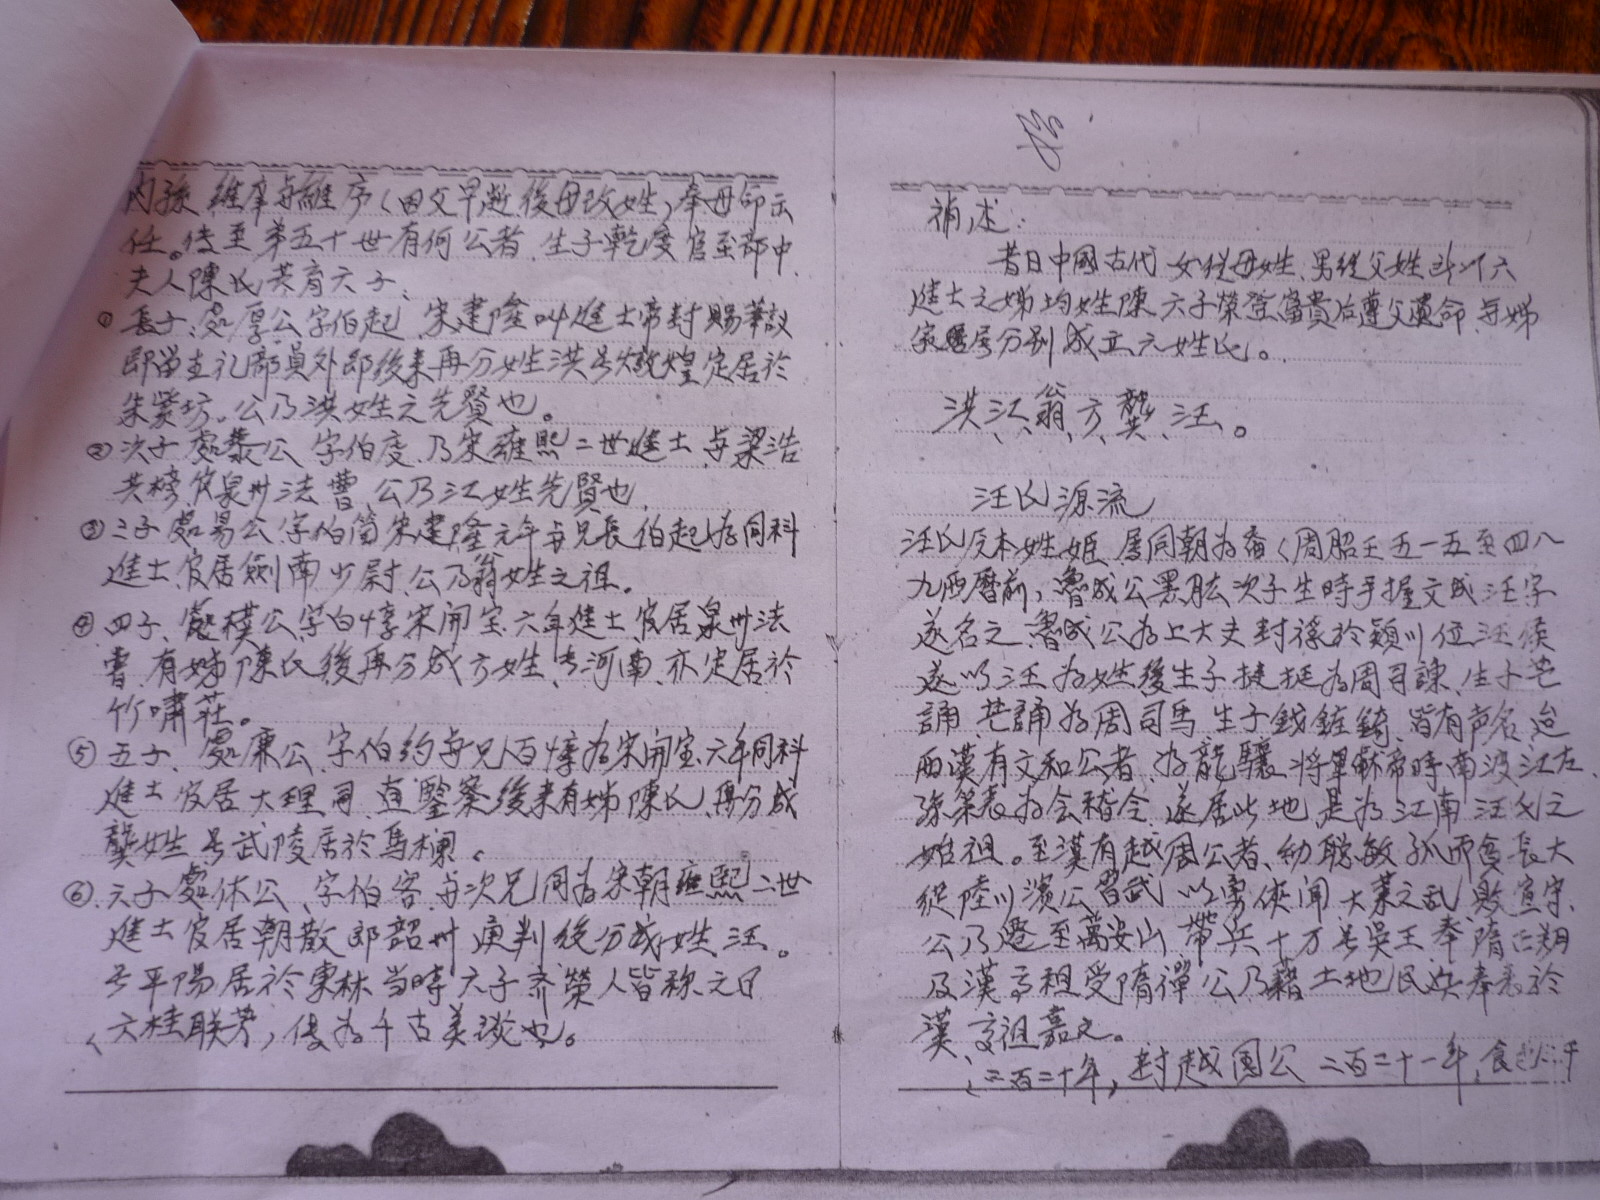 内孫維摩每維序（因父早逝後母改姓）奉母命云
任。传至第五十世有何公者.生子乾度官至郎中.
夫人陳氏共育六子:
① 長子:處厚公字伯起 宋建隆 進士帝封賜
郎 礼部員外郎後来再分姓洪号燉煌定居於
朱紫坊.公乃洪姓之先賢也。
② 次子處泰公.字伯度.乃宋雍熙二世進士.每梁浩
共榜.官泉州法曹.公乃江姓先賢也.
③ 三子處易公.字伯簡宋建隆元年每兄長伯起为同科
進士.官居劍南少尉.公乃翁姓之祖。
④ 四子.處樸公.字白惇宋開宝六年進士.官居泉州法
曹.有姊陳氏後再分成方姓.号河南.亦定居於
竹嘯莊。
⑤ 五子.處廉公.字伯约每兄伯惇为宋開宝六年同科
進士.官居大理司.直鑒察後来有姊陳氏.再分成
龔姓.号武陵居於馬欄。
⑥ 六子處休公.字伯容.每次兄同为宋朝雍熙二世
進士官居朝散郎韶州 判後分成姓汪。
号平陽居於東林.当時六子齐榮人皆称之曰
（六桂联芳）傳为千古美談也。
補述:
昔日中國古代.女從母姓.男從父姓 以六
進士之姊均姓陳.六子榮登富貴后遵父遺命.每姊
家 居分别成立六姓氏。
洪、江、翁、方、龔、汪。
汪氏源流
汪氏原本姓姬.居周朝为裔（周昭王五一五至四八
九西曆前）魯成公黑肱次子生時手握文成汪字
遂名之.魯成公为上大夫封祿於潁川位汪侯
遂以汪为姓後生子挺.挺为周司諫.生子芒
誦.芒誦为周司馬.生子錢 錡.皆有声名.迨
两漢有文和公者.为龍驤将軍献帝時南渡江左.
孫策表为会稽令.遂居此地.是为江南汪氏之
始祖。至漢有越国公者.幼聪敏孤而貪長大
從陸川濱公習武.以勇俠闻.大業之乱.敗宣守.
公乃遷至萬安山.带兵十万号吳王.奉隋正朔
及漢高祖受隋禅.公乃藉土地民 奉表於
漢.高祖嘉之。
（六百二十年）封越国公.六百二十一年.食